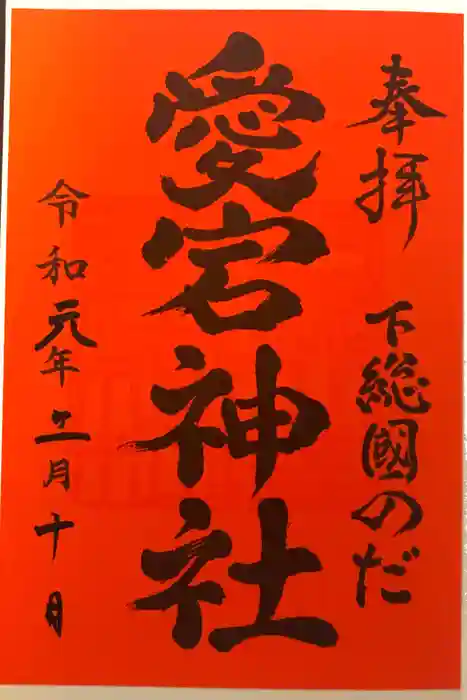 奉拝 下総國のだ
愛宕神社
令和元年 月十日